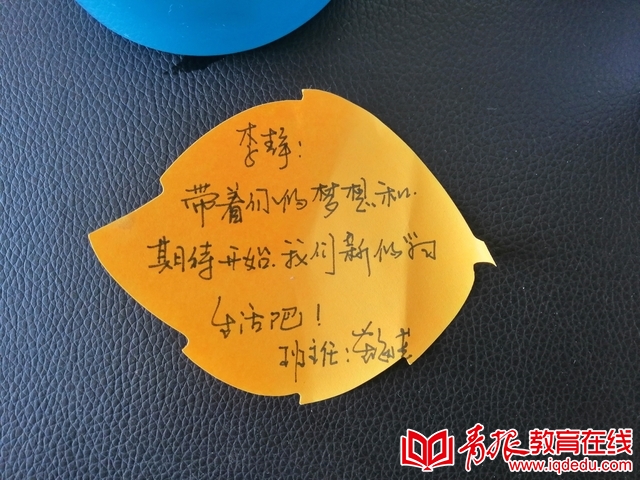 李静：
带着你的梦想和
期待开始我们新的学习
生活吧！
班主任：
青报教育在线
www.iqdedu.com